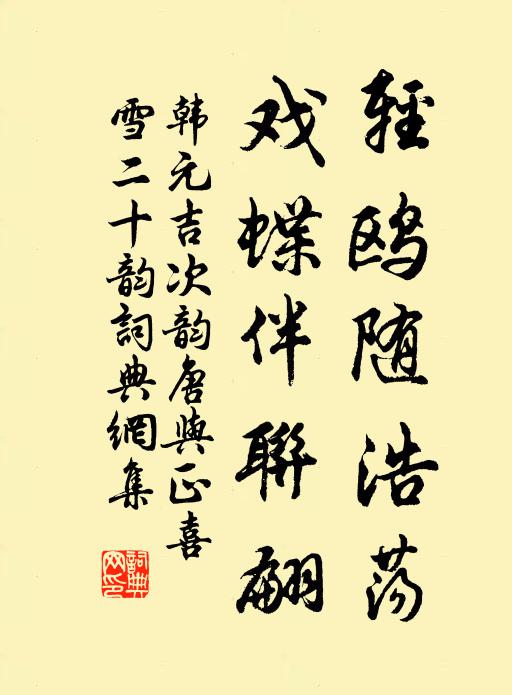 輕鸥随浩荡
戏蝶伴聯翩
韩元吉次韵唐與正喜
雪二十韵詞典網集
詞典网印